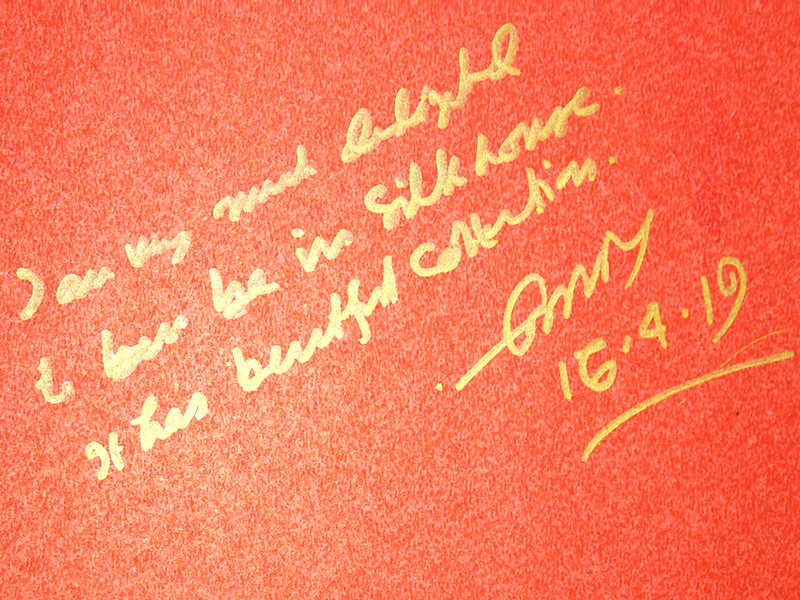 I am very much delighted
to have be in Silk house.
It has beautiful collection.
15.4.19